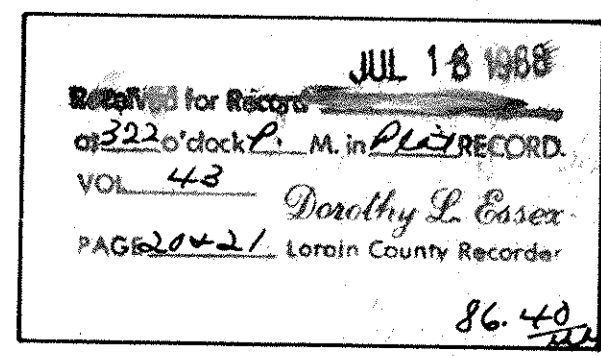 JUL 18 1988
Received for Record
at 322 o'clock P. M. in Plat RECORD.
VOL 43
Dorothy L. Essex
PAGE 20 & 21 Lorain County Recorder
86.40